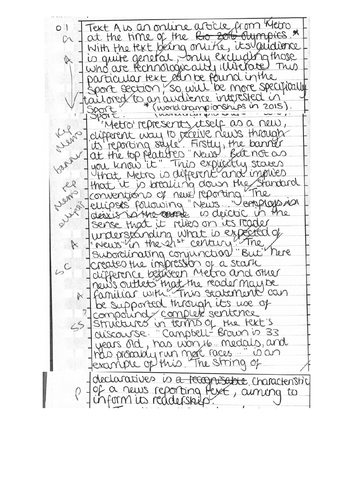 01 Text A is an online article from 'Metro'
at the time of the Rio 2016 Olympics. *
With the text being online, its audience
is quite general, only excluding those
who are technologically illiterate. This
particular text can be found in the
Sport section, so will be more specifically
tailored to an audience interested in
Sport. * (World championships in 2015).
'Metro' represents itself as a new,
different way to receive news through
its reporting style. Firstly, the banner
at the top features "News... But not as
you know it". This explicitly states
that Metro is different and implies
that it is breaking down the standard
conventions of news reporting. The
ellipses following "News..."
deixis is the is deictic in the
sense that it relies on its reader
understanding what is expected of
'News' in the 21st century. The
subordinating conjunction "But" here
creates the impression of a stark
difference between Metro and other
news outlets that the reader may be
familiar with. This statement can
be supported through its use of
compound complex sentence
structures in terms of the text's
discourse. "Campbell-Brown is 33
years old, has won 16 medals, and
has probably run more races..." is an
example of this. The string of
declaratives is a recognisable characteristic
of a news reporting text, aiming to
inform its readership.
A
A
rep
Metro
banner
rep
Metro
ellipsis
A
SC
A
SS
P